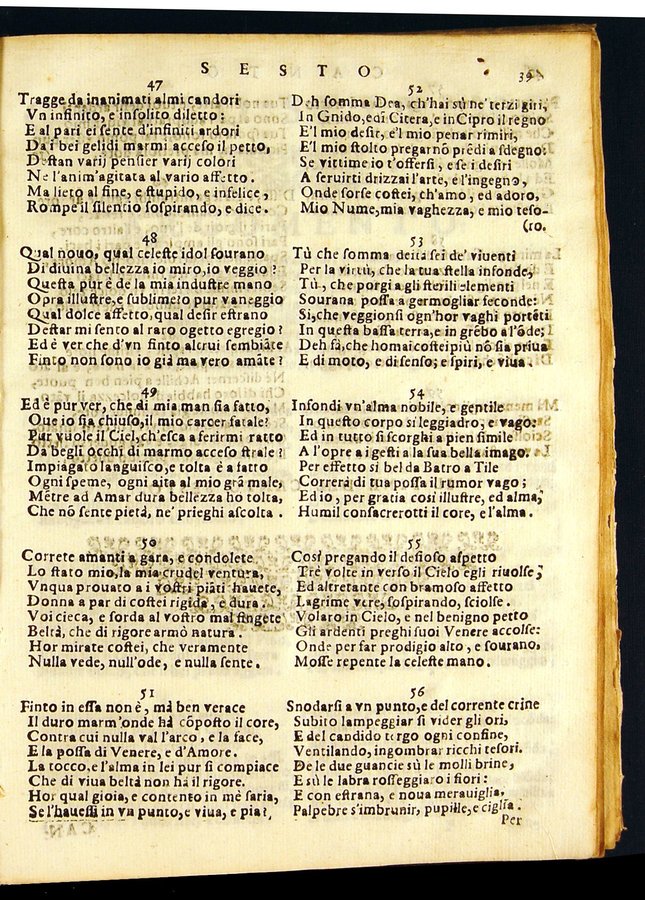 SESTO
39
47
Tragge da inanimati almi candori
Vn infinito, e insolito diletto:
E al pari ei sente d'infiniti ardori
Da i bei gelidi marmi acceso il petto,
Destan varij pensier varij colori
Ne l'anim'agitata al vario affetto.
Ma lieto al fine, e stupido, e infelice,
Rompe il silentio sospirando, e dice.
48
Qual nouo, qual celeste idol sourano
Di diuina bellezza io miro, io veggio?
Questa pur è de la mia industre mano
Opra illustre, e sublime, o pur vaneggio
Qual dolce affetto, qual desir estrano
Destar mi sento al raro ogetto egregio?
Ed è ver che d'vn finto altrui sembiãte
Finto non sono io già ma vero amãte?
49
Ed è pur ver, che di mia man sia fatto,
Oue io sia chiuso, il mio carcer fatale?
Pur vuole il Ciel, ch'esca a ferirmi ratto
Da begli occhi di marmo acceso strale?
Impiagato languisco, e tolta è a fatto
Ogni speme, ogni aita al mio grã male,
Mẽtre ad Amar dura bellezza ho tolta,
Che nõ sente pietà, ne' prieghi ascolta.
50
Correte amanti a gara, e condolete
Lo stato mio, la mia crudel ventura,
Vnqua prouato a i vostri piãti hauete,
Donna a par di costei rigida, e dura.
Voi cieca, e sorda al vostro mal fingete
Beltà, che di rigore armò natura.
Hor mirate costei, che veramente
Nulla vede, null'ode, e nulla sente.
51
Finto in essa non è, mà ben verace
Il duro marm'onde hà cõposto il core,
Contra cui nulla val l'arco, e la face,
E la possa di Venere, e d'Amore.
La tocco, e l'alma in lei pur si compiace
Che di viua beltà non hà il rigore.
Hor qual gioia, e contento in mè saria,
Se l'hauessi in vn punto, e viua, e pia?
52
Deh somma Dea, ch'hai sù ne' terzi giri,
In Gnido, ed in Citera, e in Cipro il regno
E'l mio desir, e'l mio penar rimiri,
E'l mio stolto pregar nõ prẽdi a sdegno:
Se vittime io t'offersi, e se i desiri
A seruirti drizzai l'arte, e l'ingegno,
Onde sorse costei, ch'amo, ed adoro,
Mio Nume, mia vaghezza, e mio teso-
(ro.
53
Tù che somma deità sei de' viuenti
Per la virtù, che la tua stella infonde,
Tù, che porgi a gli sterili elementi
Sourana possa a germogliar feconde:
Si, che veggionsi ogn'hor vaghi portẽti
In questa bassa terra, e in grẽbo a l'õde;
Deh fà, che homai costei più nõ sia priua
E di moto, e di senso; e spiri, e viua.
54
Infondi vn'alma nobile, e gentile
In questo corpo si leggiadro, e vago:
Ed in tutto si scorghi a pien simile
A l'opre a i gesti a la sua bella imago.
Per effetto si bel da Batro a Tile
Correrà di tua possa il rumor vago;
Ed io, per gratia così illustre, ed alma,
Humil consacrerotti il core, e l'alma.
55
Così pregando il desioso aspetto
Tre volte in verso il Cielo egli riuolse,
Ed altretante con bramoso affetto
Lagrime vere, sospirando, sciolse.
Volaro in Cielo, e nel benigno petto
Gli ardenti preghi suoi Venere accolse:
Onde per far prodigio alto, e sourano,
Mosse repente la celeste mano.
56
Snodarsi a vn punto, e del corrente crine
Subito lampeggiar si vider gli ori,
E del candido tergo ogni confine,
Ventilando, ingombrar ricchi tesori.
De le due guancie sù le molli brine,
E sù le labra rosseggiaro i fiori:
E con estrana, e noua merauiglia,
Palpebre s'imbrunir, pupille, e ciglia.
Per